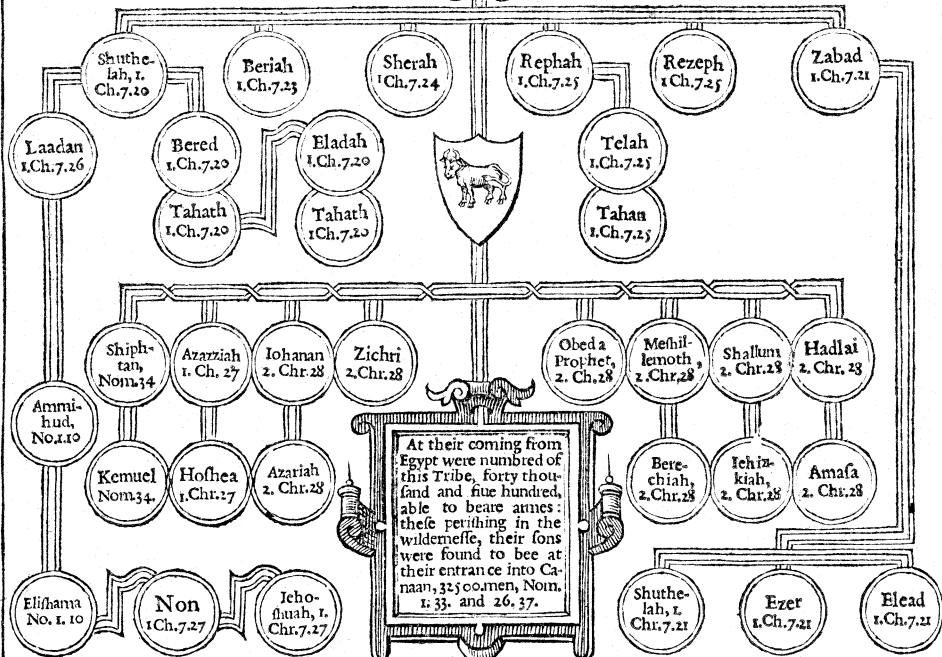 Shuthe-
lah, 1.
Ch.7.20
Beriah
1.Ch.7.23
Sherah
1Ch.7.24
Rephah
1.Ch.7.25
Rezeph
1.Ch.7.25
Zabad
1.Ch.7.21
Laadan
1.Ch.7.26
Bered
1.Ch.7.20
Eladah
1.Ch.7.20
Telah
1.Ch.7.25
Tahath
1.Ch.7.20
Tahath
1.Ch.7.20
Tahan
1.Ch.7.25
Shiph-
tan,
Nom.34
Azarziah
1. Ch. 27
Iohanan
2. Chr.28
Zichri
2.Chr.28
Obed a
Prophet,
2. Ch.28
Meſhil-
lemoth,
2.Chr,28
Shallum
2. Chr.28
Hadlai
2. Chr. 28
Ammi-
hud,
No,1.10
Kemuel
Nom.34.
Hoſhea
1.Chr.27
Azariah
2. Chr.28
Bere-
chiah,
2.Chr.28
Iehiz-
kiah,
2. Chr.28
Amaſa
2. Chr.28
At their coming from
Egypt were numbred of
this Tribe, forty thou-
ſand and fiue hundred,
able to beare armes :
theſe periſhing in the
wilderneſſe, their ſons
were found to bee at
their entrance into Ca-
naan, 32500.men, Nom.
1. 33. and 26. 37.
Eliſhama
No. 1. 10
Non
1Ch.7.27
Jeho-
ſhuah, 1.
Chr.7.27
Shuthe-
lah, 1.
Chr.7.21
Ezer
1.Ch.7.21
Elead
1.Ch.7.21